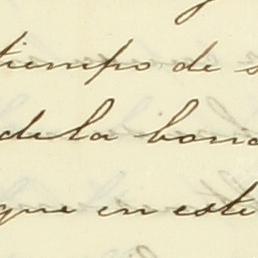 tiempo de
de la
que en este